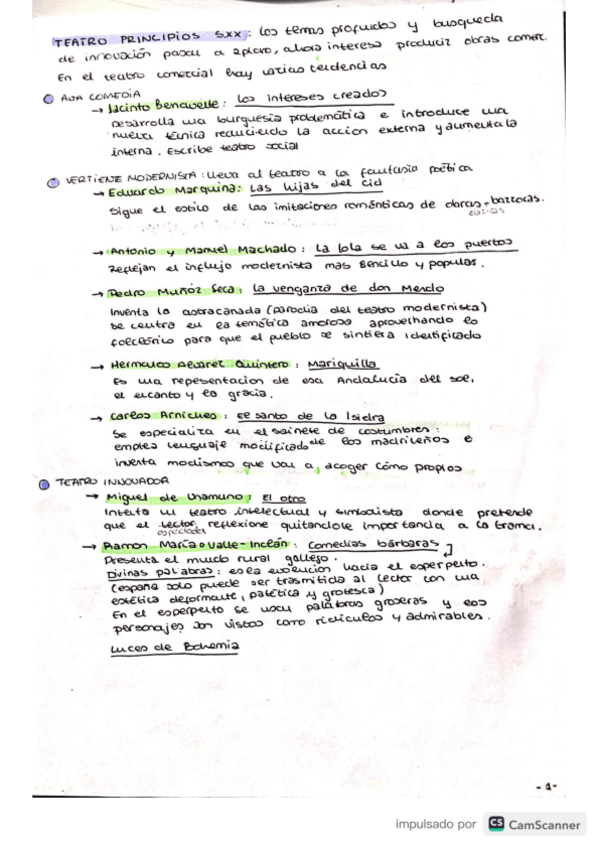 TEATRO PRINCIPIOS SXX: los temas profundos y busqueda
de innovación pasan a apuro, ahora interesa producir obras comerc.
En el teatro comercial hay varias tendencias
ALTA COMEDIA
→ Jacinto Benavente: Los intereses creados
Desarrolla una burguesia problemática e introduce una
nueva técnica reduciendo la accion externa y aumenta la
interna. Escribe teatro social
VERTIENTE MODERNISTA: lleva al teatro a la fantasia poética
→ Eduardo Marquina: Las hijas del cid
Sigue el estilo de las imitaciones románticas de obras barrocas.
→ Antonio y Manuel Machado: La lola se va a los puertos
Reflejan el influjo modernista mas sencillo y popular.
→ Pedro Muñoz Seca: La venganza de don Mendo
Inventa la astracanada (parodia del teatro modernista)
Se centra en la temática amorosa aprovechando lo
folclórico para que el pueblo se sintiera identificado
→ Hermanos Alvarez Quintero: Mariquilla
Es una representacion de esa Andalucia del sol,
el encanto y la gracia.
→ Carlos Arniches: El santo de la Isidra
Se especializa en el sainete de costumbres:
emplea lenguaje modificado de los madrileños e
inventa modismos que van a acoger cómo propios
TEATRO INNOVADOR
→ Miguel de Unamuno: El otro
Intenta un teatro intelectual y simbolista donde pretende
que el lector, reflexione quitandole importancia a la trama.
espectador
→ Ramon Maria Valle-Inclán: Comedias bárbaras
Presenta el mundo rural gallego.
Divinas palabras: es la evolucion hacia el esperpento.
(españa solo puede ser trasmitida al lector con una
estética deformante, patética y grotesca)
En el esperpento se usan palabras groseras y los
personajes son vistos como ridiculos y admirables.
Luces de Bohemia
-1-
impulsado por CS CamScanner